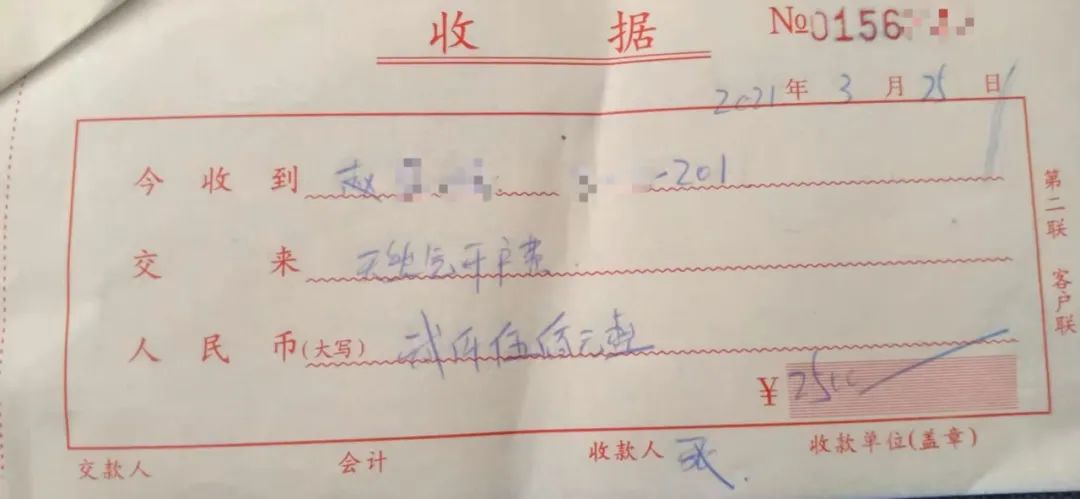 收据
№0156
2021年3月25日
今收到 赵 -201
交来 天然气开户费
人民币(大写) 贰仟伍佰元整
¥2500
交款人 会计 收款人 收款单位(盖章)
第二联 客户联